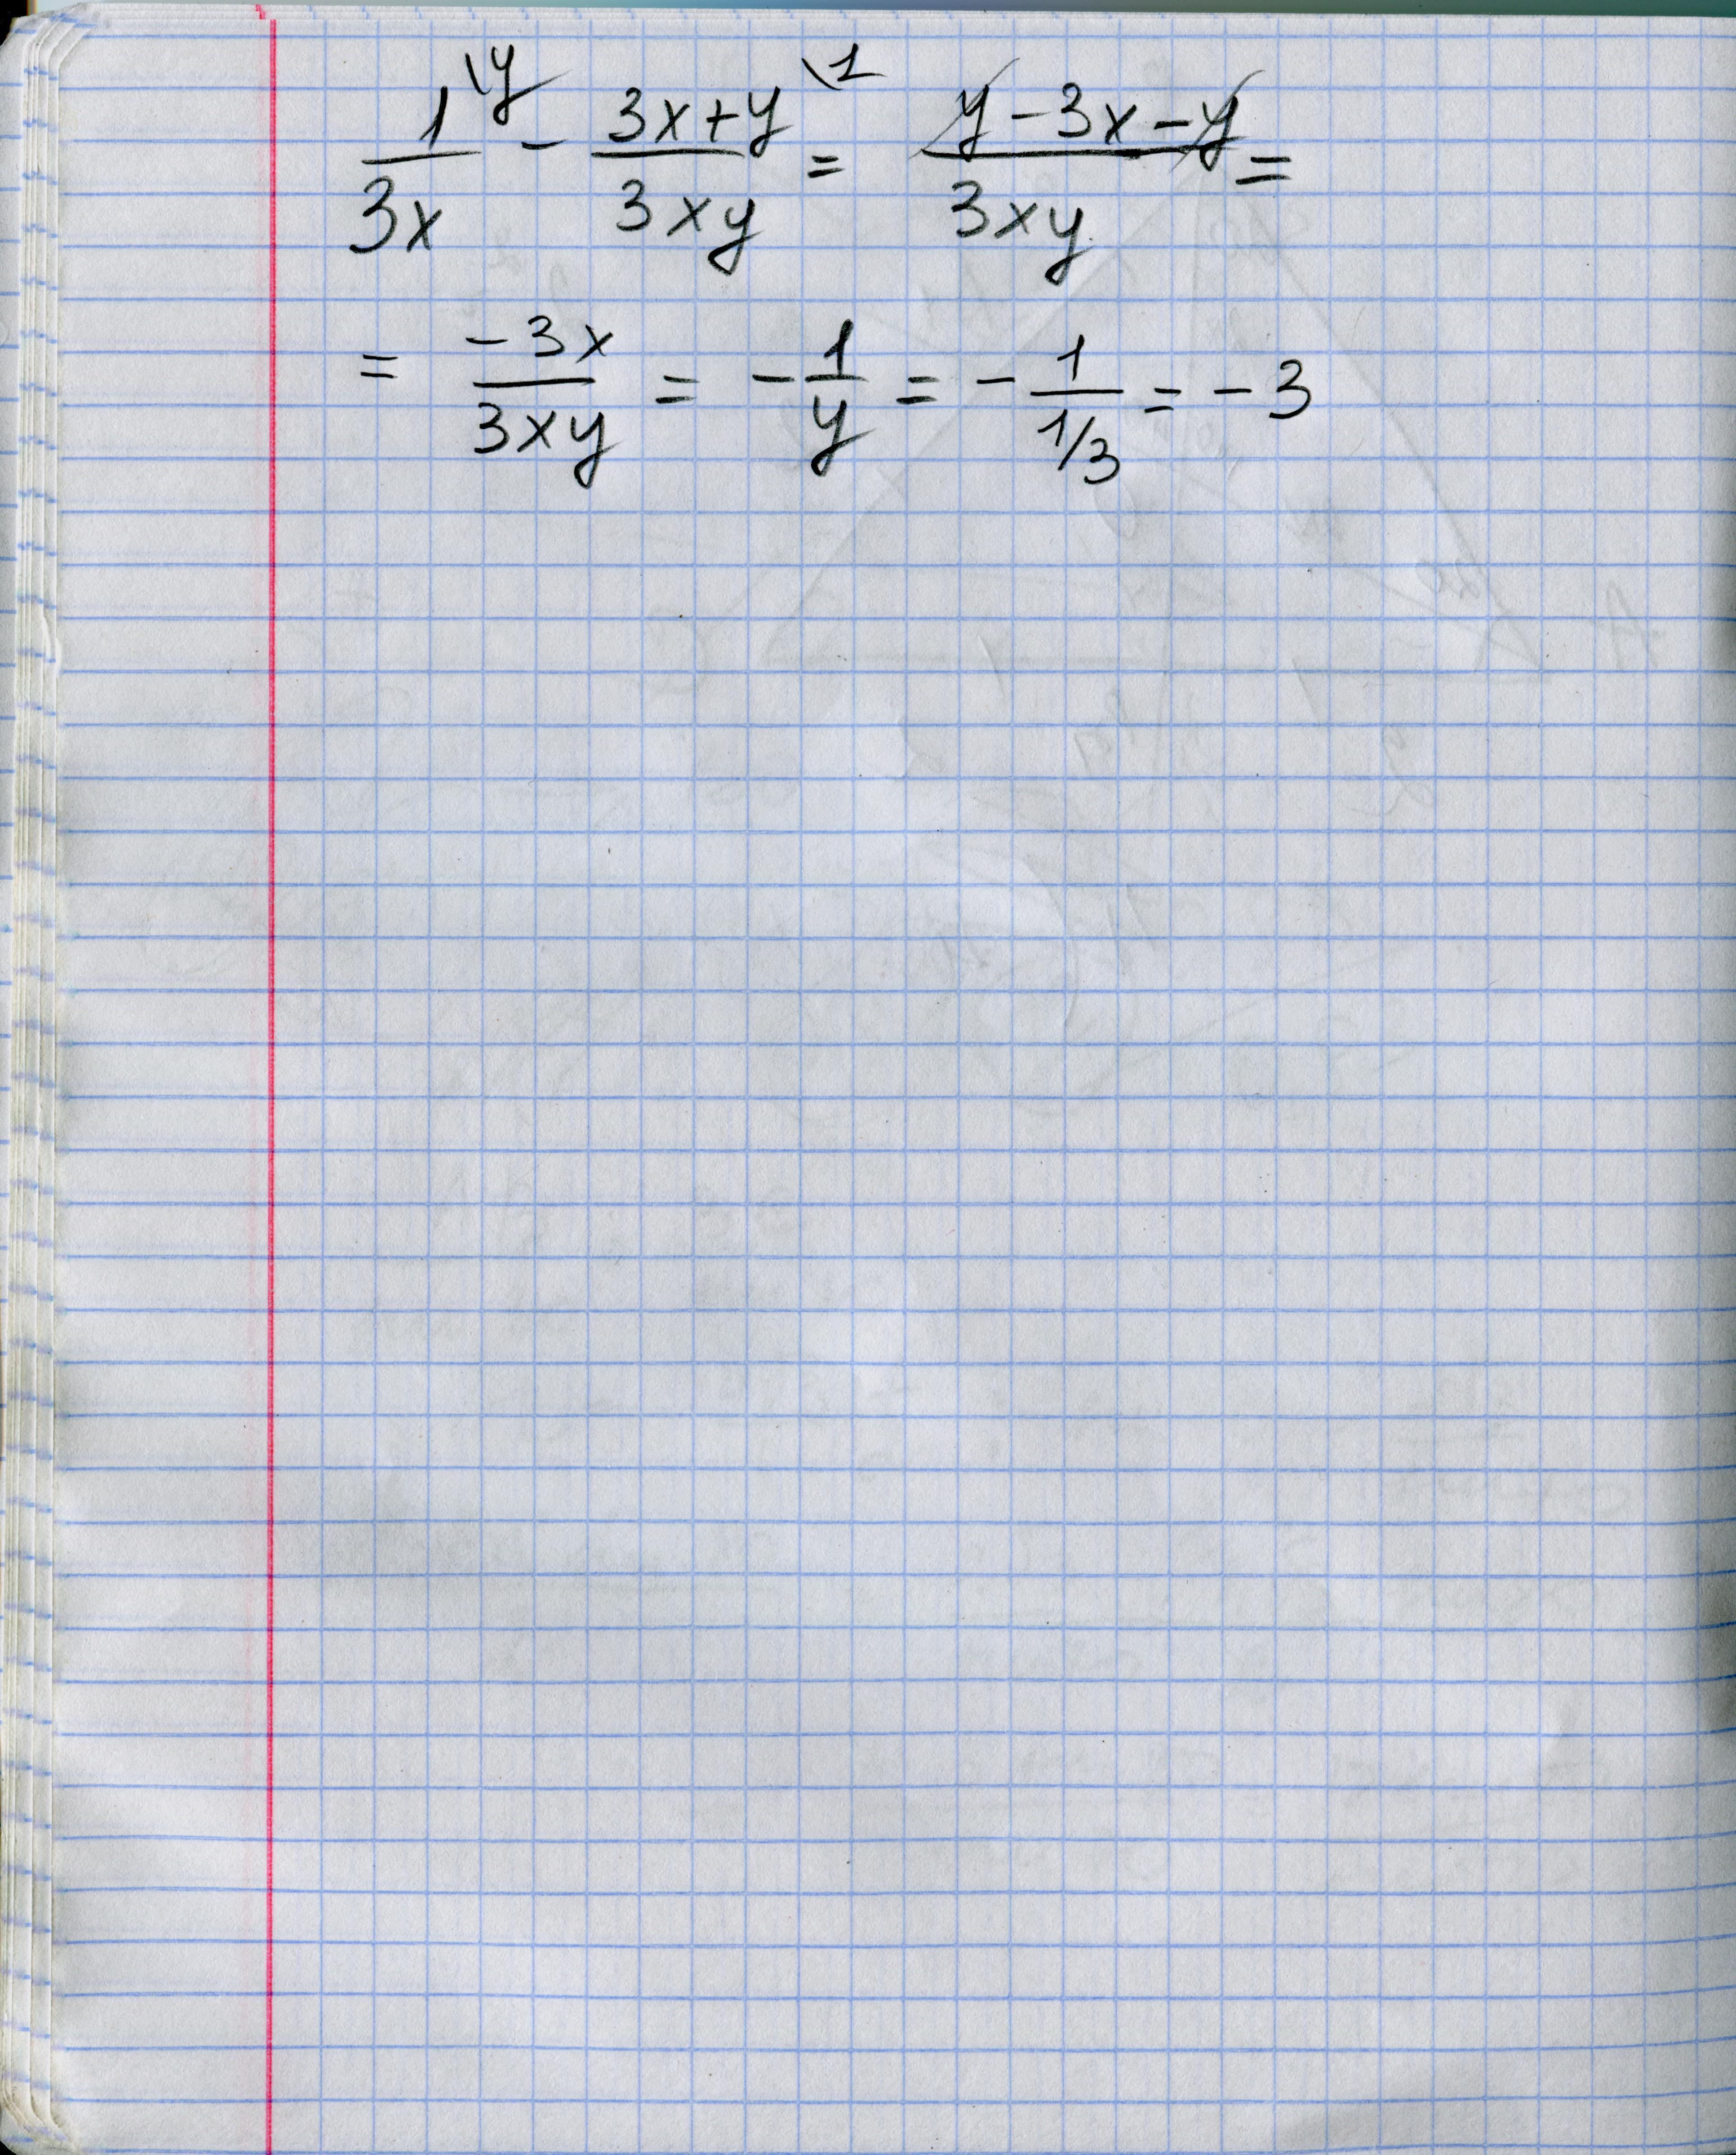 1/3x \y - (3x+y)/3xy \1 = (y-3x-y)/3xy =
= -3x/3xy = -1/y = -1/(1/3) = -3